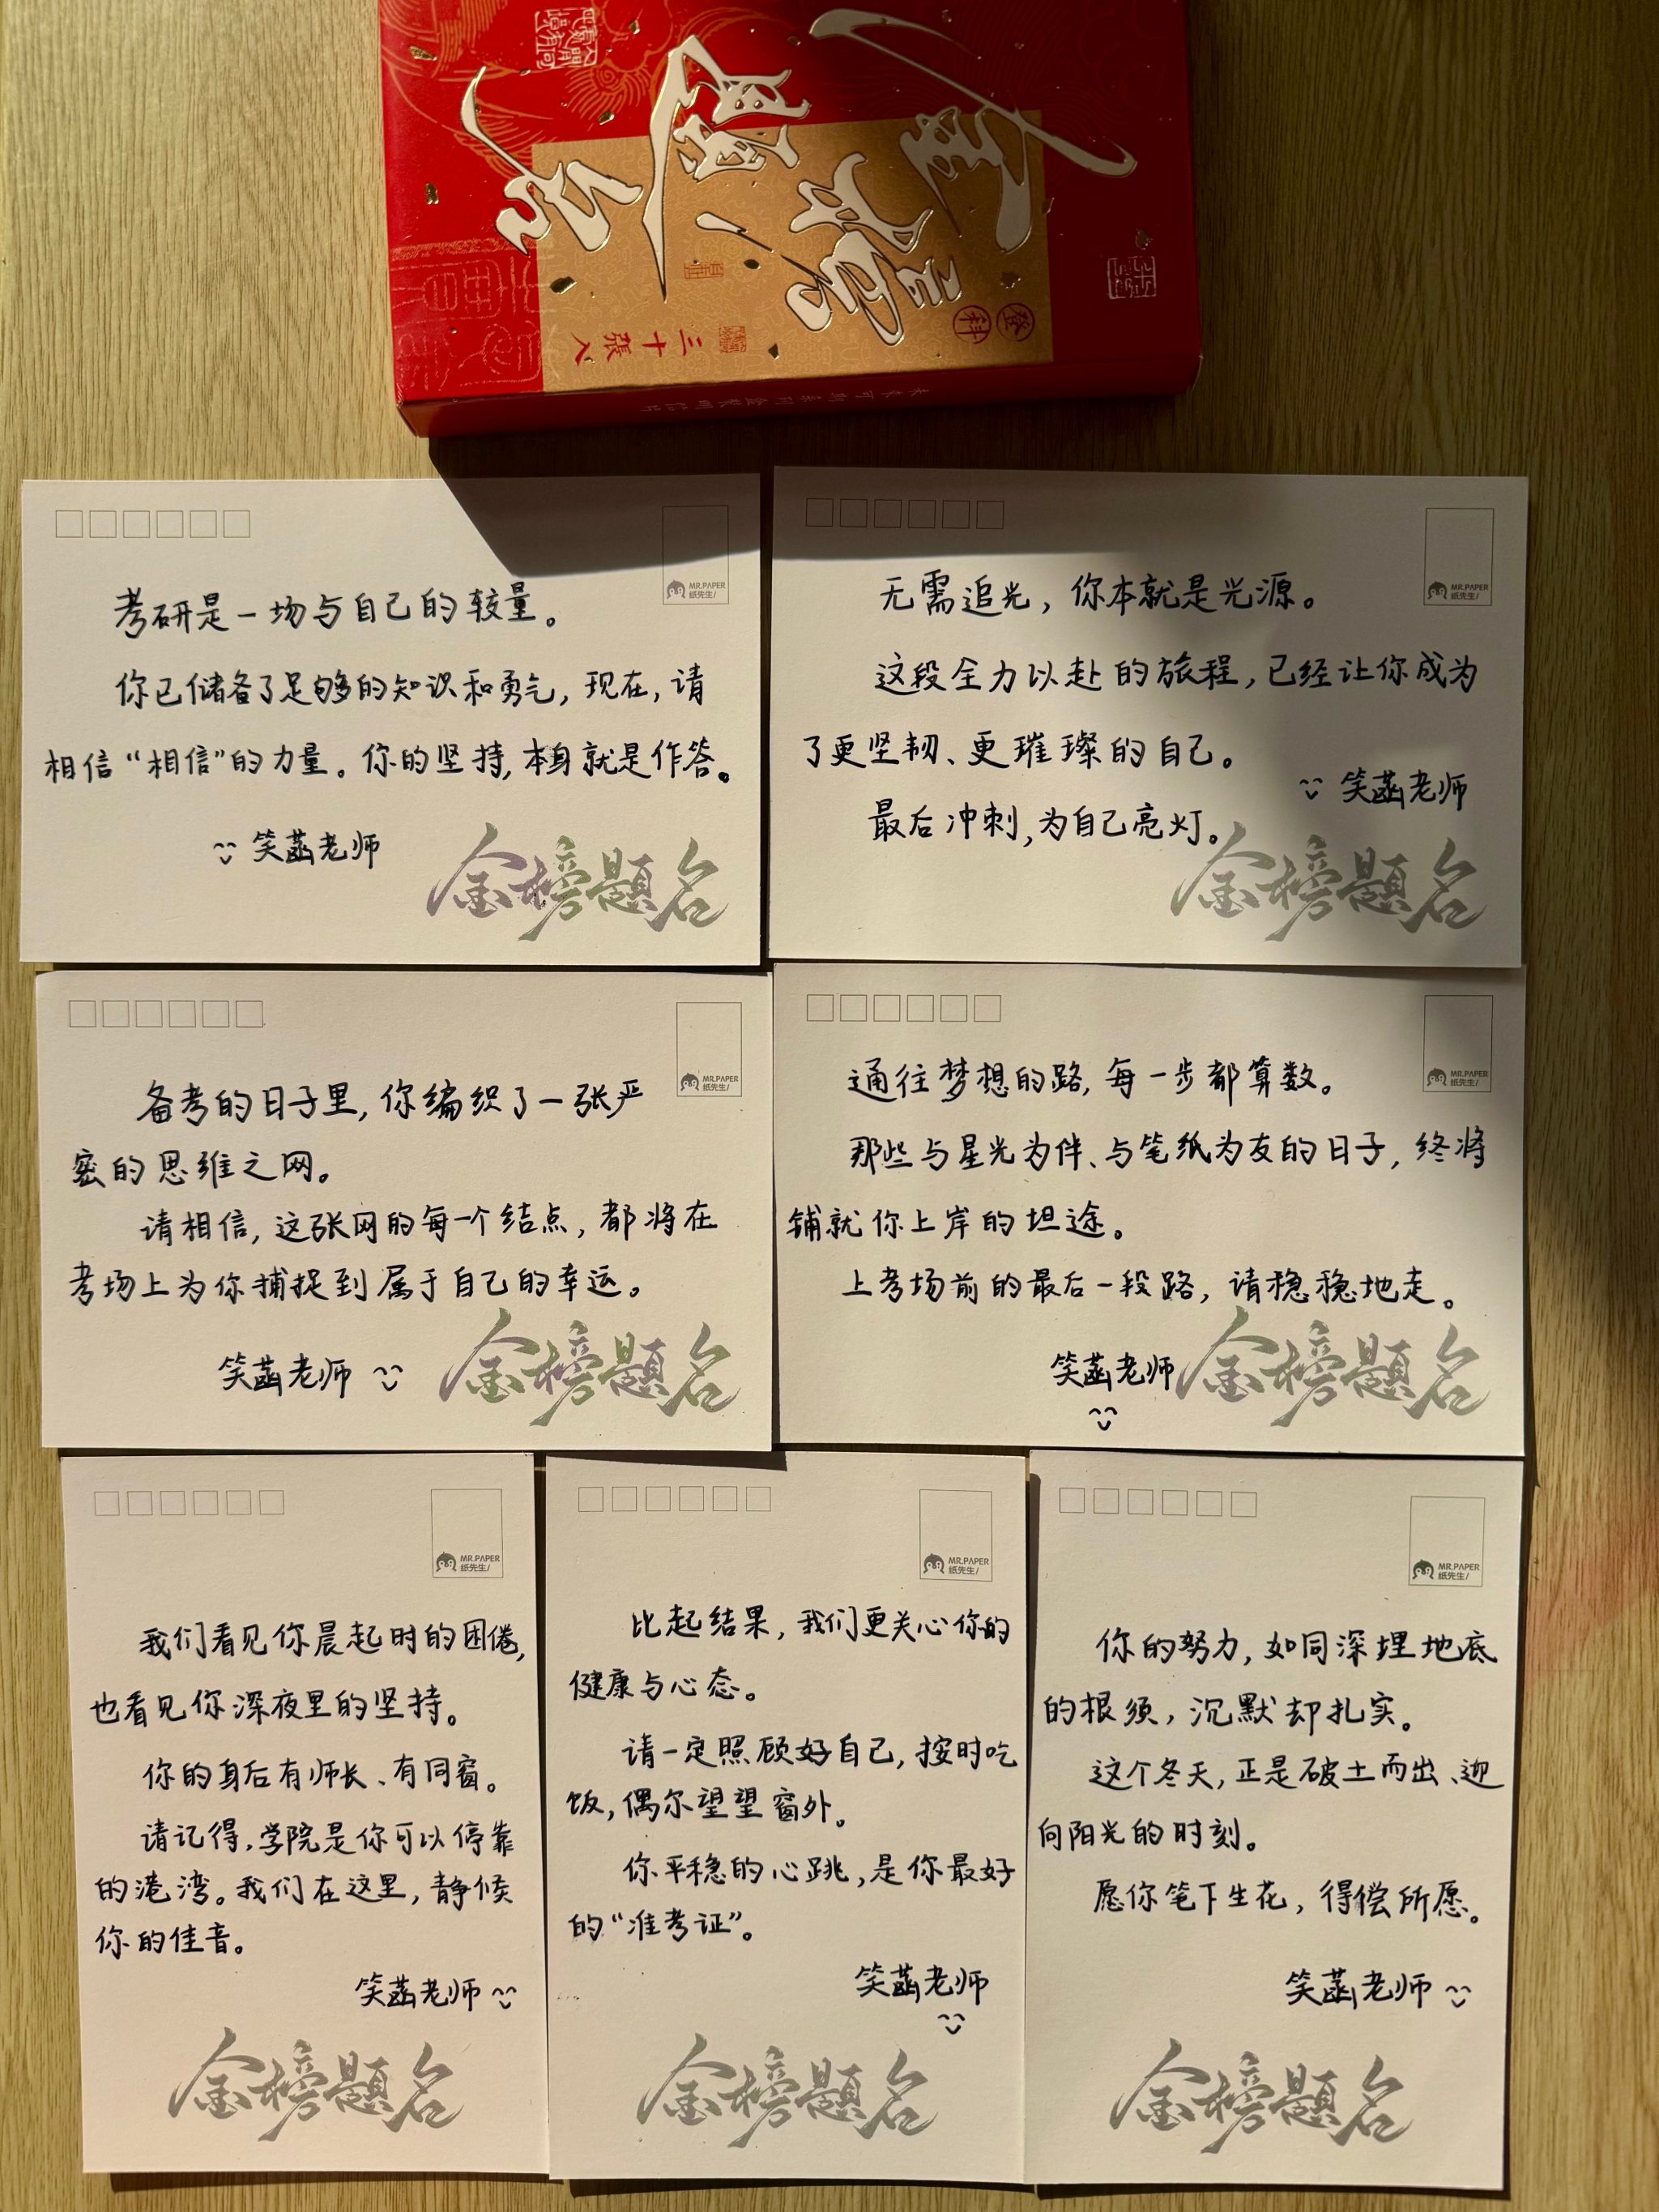 金榜題名
登科
三十張入
MR.PAPER
纸先生/
考研是一场与自己的较量。
你已储备了足够的知识和勇气，现在，请
相信“相信”的力量。你的坚持，本身就是作答。
笑菡老师
金榜題名
MR.PAPER
纸先生/
无需追光，你本就是光源。
这段全力以赴的旅程，已经让你成为
了更坚韧、更璀璨的自己。
笑菡老师
最后冲刺，为自己亮灯。
金榜題名
MR.PAPER
纸先生/
备考的日子里，你编织了一张严
密的思维之网。
请相信，这张网的每一个结点，都将在
考场上为你捕捉到属于自己的幸运。
笑菡老师
金榜題名
MR.PAPER
纸先生/
通往梦想的路，每一步都算数。
那些与星光为伴、与笔纸为友的日子，终将
铺就你上岸的坦途。
上考场前的最后一段路，请稳稳地走。
笑菡老师
金榜題名
MR.PAPER
纸先生/
我们看见你晨起时的困倦，
也看见你深夜里的坚持。
你的身后有师长、有同窗。
请记得，学院是你可以停靠
的港湾。我们在这里，静候
你的佳音。
笑菡老师
金榜題名
MR.PAPER
纸先生/
比起结果，我们更关心你的
健康与心态。
请一定照顾好自己，按时吃
饭，偶尔望望窗外。
你平稳的心跳，是你最好
的“准考证”。
笑菡老师
金榜題名
MR.PAPER
纸先生/
你的努力，如同深埋地底
的根须，沉默却扎实。
这个冬天，正是破土而出、迎
向阳光的时刻。
愿你笔下生花，得偿所愿。
笑菡老师
金榜題名